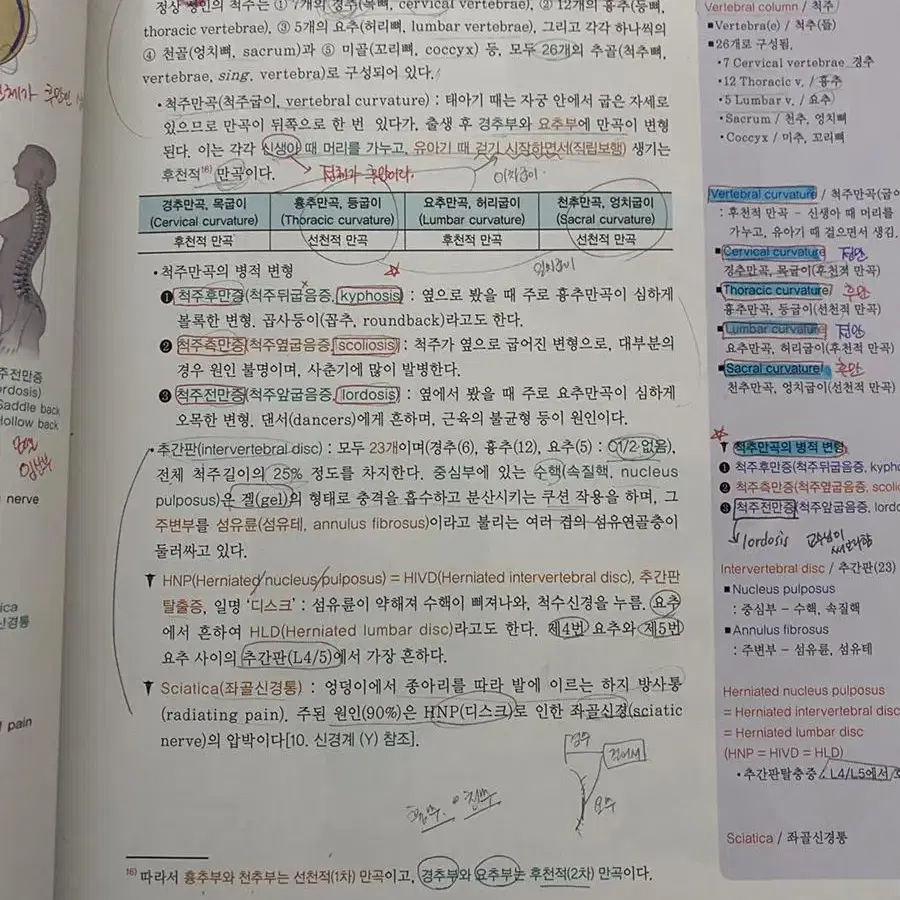 정상 성인의 척주는 ① 7개의 경추(목뼈, cervical vertebrae), ② 12개의 흉추(등뼈,
thoracic vertebrae), ③ 5개의 요추(허리뼈, lumbar vertebrae), 그리고 각각 하나씩의
④ 천골(엉치뼈, sacrum)과 ⑤ 미골(꼬리뼈, coccyx) 등, 모두 26개의 추골(척추뼈,
vertebrae, sing. vertebra)로 구성되어 있다.
• 척주만곡(척주굽이, vertebral curvature) : 태아기 때는 자궁 안에서 굽은 자세로
있으므로 만곡이 뒤쪽으로 한 번 있다가, 출생 후 경추부와 요추부에 만곡이 변형
된다. 이는 각각 신생아 때 머리를 가누고, 유아기 때 걷기 시작하면서(직립보행) 생기는
후천적16) 만곡이다.
경추만곡, 목굽이 흉추만곡, 등굽이 요추만곡, 허리굽이 천추만곡, 엉치굽이
(Cervical curvature) (Thoracic curvature) (Lumbar curvature) (Sacral curvature)
후천적 만곡 선천적 만곡 후천적 만곡 선천적 만곡
• 척주만곡의 병적 변형
❶ 척주후만증(척주뒤굽음증, kyphosis) : 옆으로 봤을 때 주로 흉추만곡이 심하게
볼록한 변형. 곱사등이(꼽추, roundback)라고도 한다.
❷ 척주측만증(척주옆굽음증, scoliosis) : 척주가 옆으로 굽어진 변형으로, 대부분의
경우 원인 불명이며, 사춘기에 많이 발병한다.
❸ 척주전만증(척주앞굽음증, lordosis) : 옆에서 봤을 때 주로 요추만곡이 심하게
오목한 변형. 댄서(dancers)에게 흔하며, 근육의 불균형 등이 원인이다.
• 추간판(intervertebral disc) : 모두 23개이며(경추(6), 흉추(12), 요추(5) : C1/2 없음),
전체 척주길이의 25% 정도를 차지한다. 중심부에 있는 수핵(속질핵, nucleus
pulposus)은 겔(gel)의 형태로 충격을 흡수하고 분산시키는 쿠션 작용을 하며, 그
주변부를 섬유륜(섬유테, annulus fibrosus)이라고 불리는 여러 겹의 섬유연골층이
둘러싸고 있다.
HNP(Herniated nucleus pulposus) = HIVD(Herniated intervertebral disc), 추간판
탈출증, 일명 '디스크' : 섬유륜이 약해져 수핵이 삐져나와, 척수신경을 누름. 요추
에서 흔하여 HLD(Herniated lumbar disc)라고도 한다. 제4번 요추와 제5번
요추 사이의 추간판(L4/5)에서 가장 흔하다.
Sciatica(좌골신경통) : 엉덩이에서 종아리를 따라 발에 이르는 하지 방사통
(radiating pain). 주된 원인(90%)은 HNP(디스크)로 인한 좌골신경(sciatic
nerve)의 압박이다[10. 신경계 (Y) 참조].
경추
요추
16) 따라서 흉추부와 천추부는 선천적(1차) 만곡이고, 경추부와 요추부는 후천적(2차) 만곡이다.
주전만증
ordosis)
Saddle back
Hollow back
nerve
tica
신경통
pain
Vertebral column / 척주
■Vertebra(e) / 척추(들)
■26개로 구성됨.
•7 Cervical vertebrae 경추
•12 Thoracic v. / 흉추
•5 Lumbar v. / 요추
•Sacrum / 천추, 엉치뼈
•Coccyx / 미추, 꼬리뼈
Vertebral curvature / 척주만곡(굽이
: 후천적 만곡 – 신생아 때 머리를
가누고, 유아기 때 걸으면서 생김.
■Cervical curvature 전만
경추만곡, 목굽이(후천적 만곡)
■Thoracic curvature/ 후만
흉추만곡, 등굽이(선천적 만곡)
■Lumbar curvature/ 전만
요추만곡, 허리굽이(후천적 만곡)
■Sacral curvature/ 후만
천추만곡, 엉치굽이(선천적 만곡)
척추만곡의 병적 변형
❶ 척주후만증(척주뒤굽음증, kypho
❷ 척주측만증(척주옆굽음증, scolio
❸ 척주전만증(척주앞굽음증, lordo
lordosis
Intervertebral disc / 추간판(23)
■ Nucleus pulposus
: 중심부 – 수핵, 속질핵
■Annulus fibrosus
: 주변부 – 섬유륜, 섬유테
Herniated nucleus pulposus
= Herniated intervertebral disc
= Herniated lumbar disc
(HNP = HIVD = HLD)
•추간판탈출증. L4/L5에서
Sciatica / 좌골신경통